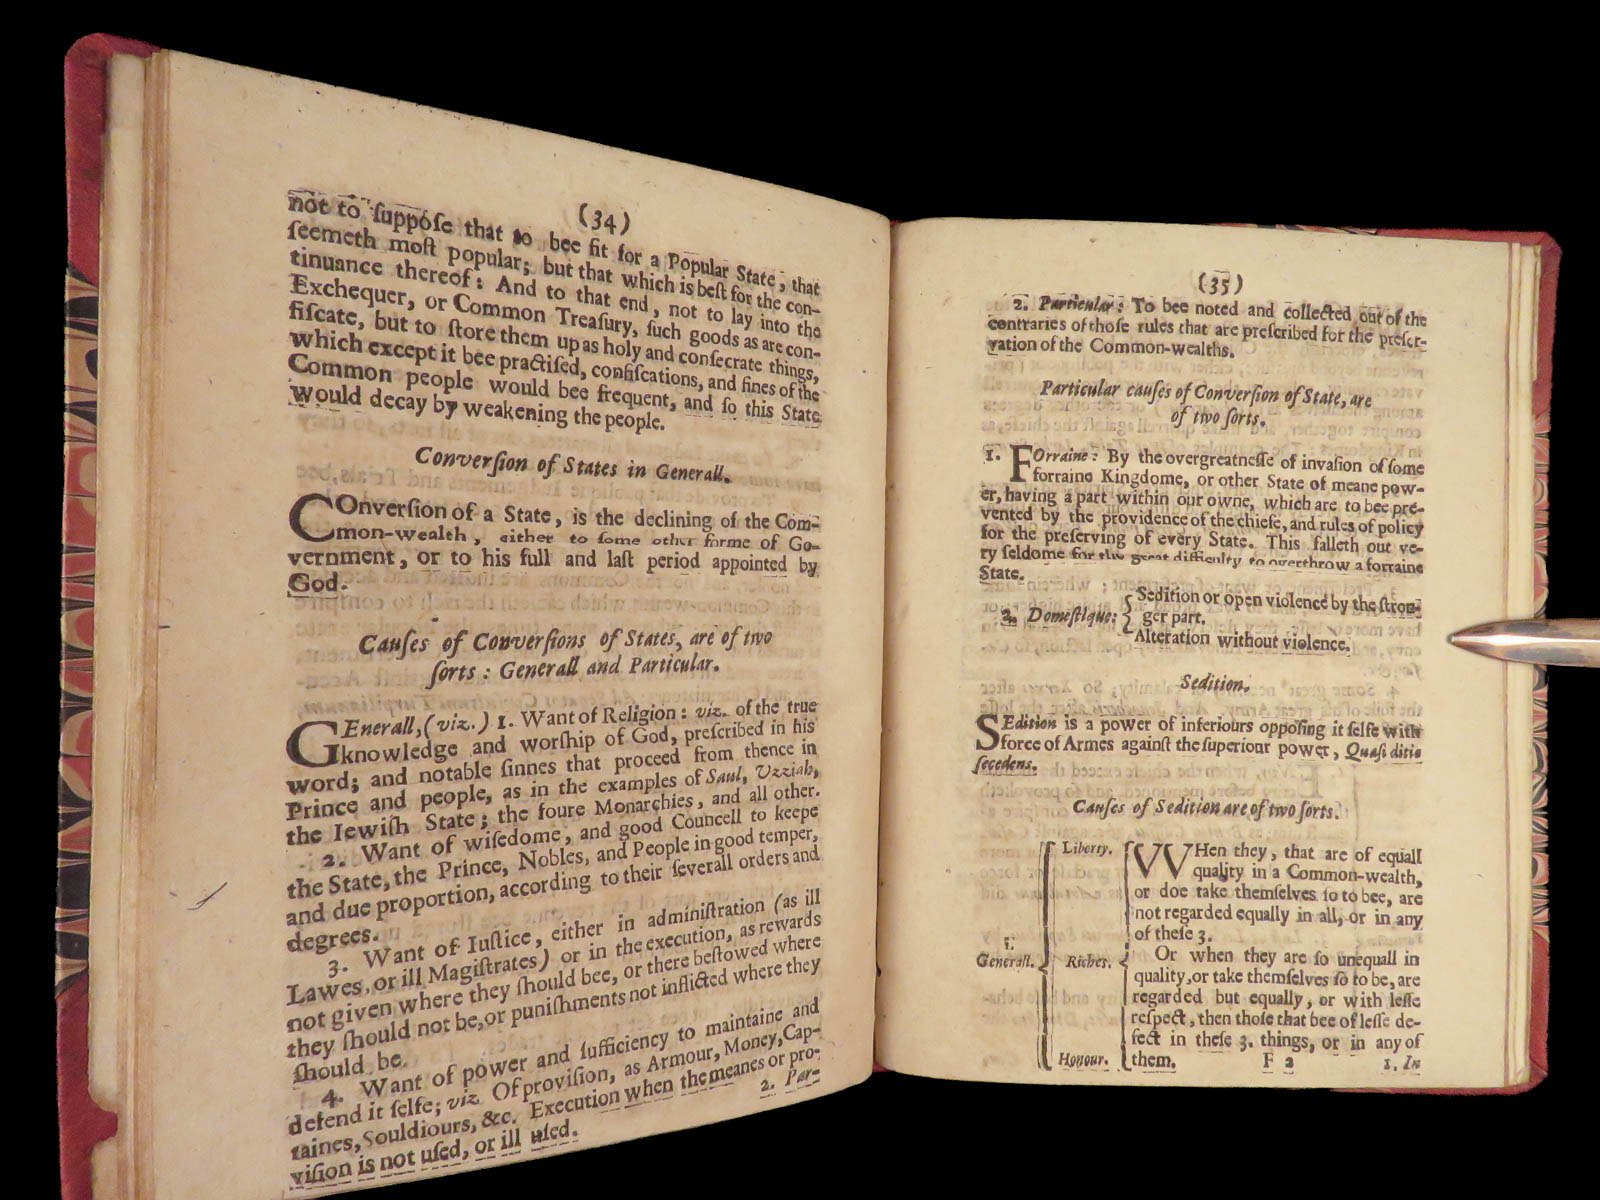 (34)
not to ſuppoſe that to bee fit for a Popular State, that
ſeemeth moſt popular; but that which is beſt for the con-
tinuance thereof: And to that end, not to lay into the
Exchequer, or Common Treaſury, ſuch goods as are con-
fiſcate, but to ſtore them up as holy and conſecrate things,
which except it bee practiſed, confiſcations, and fines of the
Common people would bee frequent, and ſo this State
would decay by weakening the people.
Converſion of States in Generall.
COnverſion of a State, is the declining of the Com-
mon-wealth, either to ſome other forme of Go-
vernment, or to his full and laſt period appointed by
God.
Cauſes of Converſions of States, are of two
ſorts: Generall and Particular.
GEnerall, (viz.) 1. Want of Religion: viz. of the true
knowledge and worſhip of God, preſcribed in his
word; and notable ſinnes that proceed from thence in
Prince and people, as in the examples of Saul, Uzziah,
the Iewiſh State; the foure Monarchies, and all other.
2. Want of wiſedome, and good Councell to keepe
the State, the Prince, Nobles, and People in good temper,
and due proportion, according to their ſeverall orders and
degrees.
3. Want of Iuſtice, either in adminiſtration (as ill
Lawes, or ill Magiſtrates) or in the execution, as rewards
not given where they ſhould bee, or there beſtowed where
they ſhould not be, or puniſhments not inflicted where they
ſhould be.
4. Want of power and ſufficiency to maintaine and
defend it ſelfe; viz. Of proviſion, as Armour, Money, Cap-
taines, Souldiours, &c. Execution when the meanes or pro-
viſion is not uſed, or ill uſed.
2. Par-
(35)
2. Particular: To bee noted and collected out of the
contraries of thoſe rules that are preſcribed for the preſer-
vation of the Common-wealths.
Particular cauſes of Converſion of State, are
of two ſorts.
1. FOrraine: By the overgreatneſſe of invaſion of ſome
forraine Kingdome, or other State of meane pow-
er, having a part within our owne, which are to bee pre-
vented by the providence of the chiefe, and rules of policy
for the preſerving of every State. This falleth out ve-
ry ſeldome for the great difficulty to overthrow a forraine
State.
2. Domeſtique: { Sedition or open violence by the ſtron-
ger part.
Alteration without violence.
Sedition.
SEdition is a power of inferiours oppoſing it ſelfe with
force of Armes againſt the ſuperiour power, Quaſi ditio
ſecedens.
Cauſes of Sedition are of two ſorts.
1.
Generall. {
Liberty.
Riches.
Honour. {
WHen they, that are of equall
quality in a Common-wealth,
or doe take themſelves ſo to bee, are
not regarded equally in all, or in any
of theſe 3.
Or when they are ſo unequall in
quality, or take themſelves ſo to be, are
regarded but equally, or with leſſe
reſpect, then thoſe that bee of leſſe de-
fect in theſe 3. things, or in any of
them.
F 2
1. In